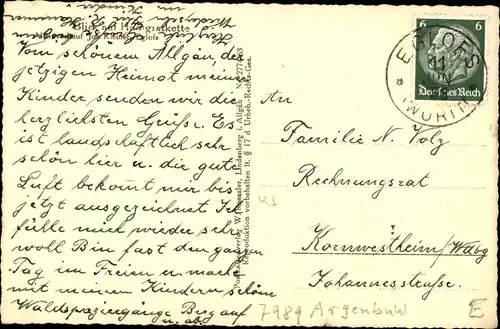 Blick auf Hochgratkette
Vom schönem Allgäu der
jetzigen Heimat meiner
Kinder senden wir die
herzlichsten Grüße. Es
ist landschaftlich sehr
schön hier u. die gute
Luft bekomt mir bis
jetzt ausgezeichnet. Ich
fühle mich wieder sehr
wohl. Bin fast den ganzen
Tag im Freien u. mache
mit meinen Kindern schöne
Waldspaziergänge Bergauf
u. ab.
Lindenberg i. Allgäu
Reproduktion vorbehalten lt. § 17 d Urheb.-Rechts-Ges.
6 6
Deutsches Reich
EGLOFS
(WÜRTT)
An
Familie N. Volz
Rechnungsrat
Kornwestheim/Wttbg
Johannesstraße.
7989 Argenbühl
E